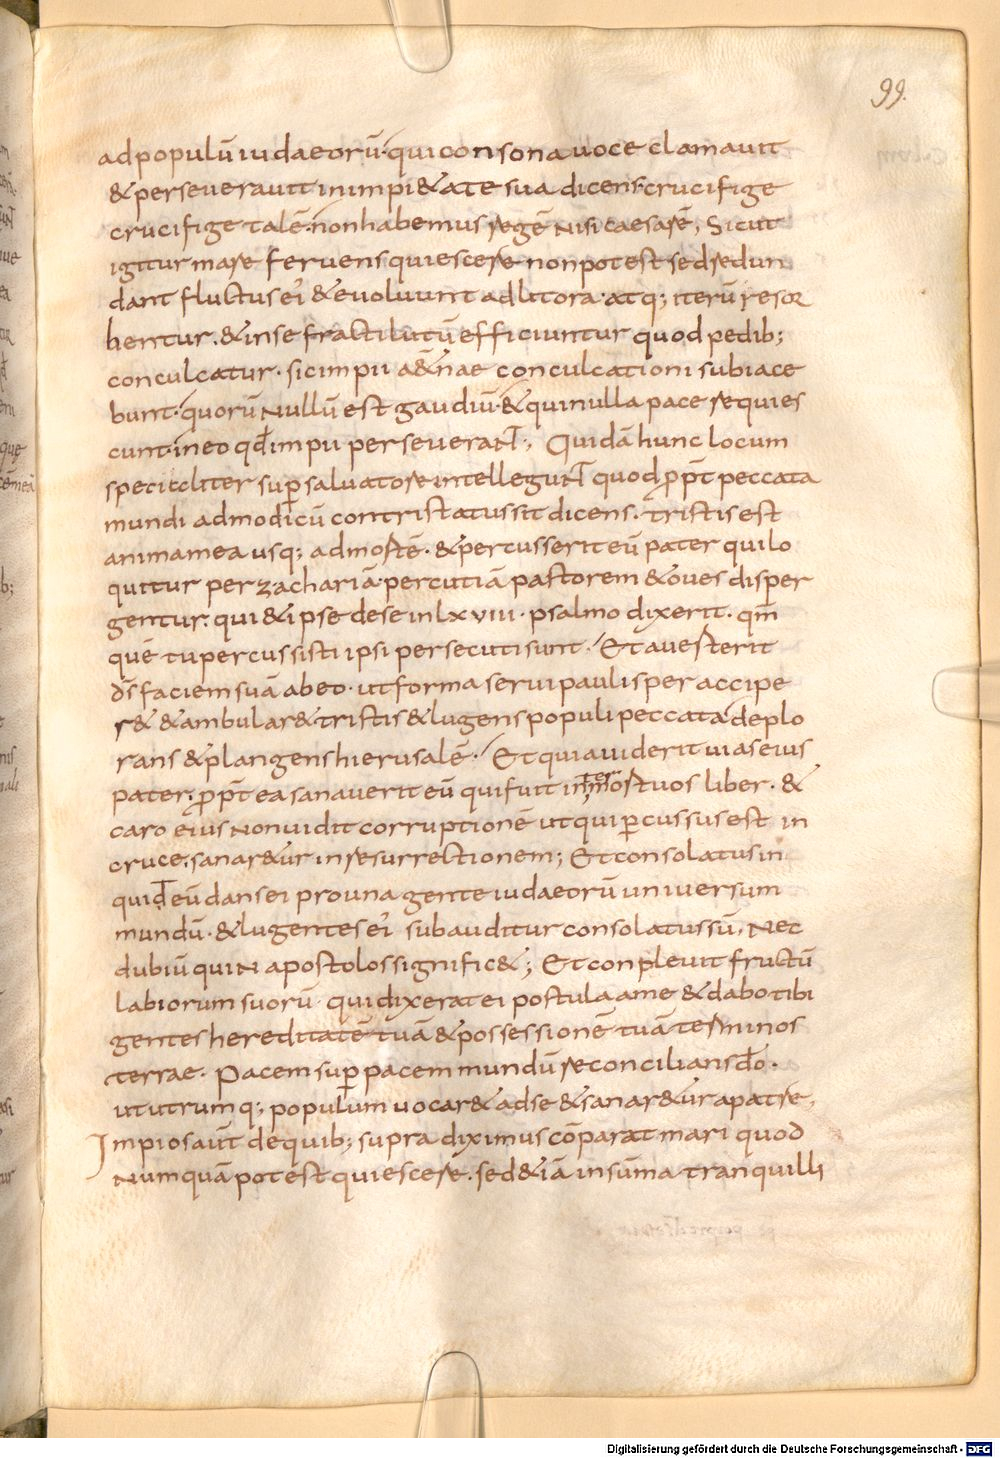 99.
ad populū iudaeorū· qui consona uoce clamauit
& perseverauit in impi&ate sua dicens· crucifige
crucifige talē· non habemus regē nisi caesarē; Sicut
igitur mare feruens quiescere non potest sed redun
dant fluctus ei' & euoluunt ad litora· atq; iterū resor
bentur. & in se fracti lutū efficiuntur quod pedib;
conculcatur· sic impii a&̄nae conculcationi subiace
bunt· quorū nullū est gaudiū· & qui nulla pace requies
cunt· in eo qđ impii perseverant; Quidā hunc locum
specialiter sup̄ saluatore intellegunt quod ꝓpt̄ peccata
mundi ad modicū contristatus sit dicens· tristis est
anima mea usq; ad mortē· & percusserit eū pater qui lo
quitur per zachariā· percutiā pastorem & oues disper
gentur· qui & ipse de se in lxviii· psalmo dixerit· qm̄
quē tu percussisti ipsi persecuti sunt· Et auesterit
dī faciem suā ab eo· ut forma serui paulisper accipe
r& & ambular& tristis & lugens populi peccata deplo
rans & plangens hierusalē· Et quia uiderit uias eius
pater· ꝓpt̄ea sanauerit eū qui fuit inter mortuos liber· &
caro eius non uidit corruptionē ut qui ꝑcussus est in
cruce· sanar&ur in resurrectionem; Et consolatus in
quid eū dans ei pro una gente iudaeorū universum
mundū· & lugentes ei' subauditur consolatus sū, Nec
dubiū quin apostolos signific&; Et conplevit fructū
labiorum suorū· qui dixerat ei postula a me & dabo tibi
gentes hereditatē tuā & possessionē tuā terminos
terrae· Pacem sup̄ pacem mundū reconcilians đo·
ut utrumq; populum uocar& ad se & sanar&ur a patre,
Impios aūt de quib; supra diximus cōparat mari quod
numquā potest quiescere· sed &iā in sūma tranquilli
Digitalisierung gefördert durch die Deutsche Forschungsgemeinschaft - DFG